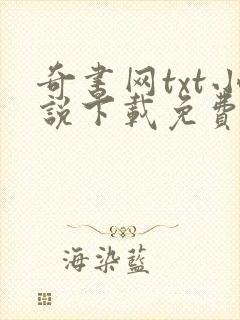 奇書网txt小
說下載免費
海染藍